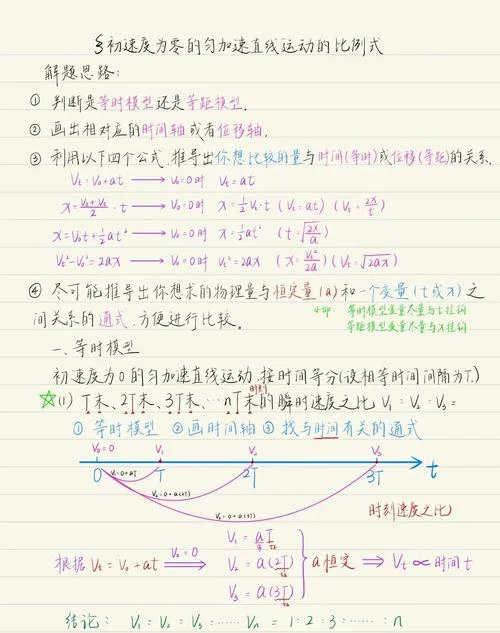 §初速度为零的匀加速直线运动的比例式
解题思路:
① 判断是等时模型还是等距模型.
② 画出相对应的时间轴或者位移轴.
③ 利用以下四个公式,推导出你想比较的量与时间(等时)或位移(等距)的关系.
Vt=V0+at → V0=0时 Vt=at
x=(V0+Vt)/2·t → V0=0时 x=½Vt·t (Vt=at) (Vt=2x/t)
x=V0t+½at² → V0=0时 x=½at² (t=√(2x/a))
Vt²-V0²=2ax → V0=0时 Vt²=2ax (x=Vt²/2a) (Vt=√(2ax))
④ 尽可能推导出你想求的物理量与恒定量(a)和一个变量(t或x)之
间关系的通式,方便进行比较。
tip: 等时模型变量尽量与t挂钩
等距模型变量尽量与x挂钩
一、等时模型
初速度为0的匀加速直线运动,按时间等分(设相等时间间隔为T.)
时刻
☆(1) T末、2T末、3T末、…nT末的瞬时速度之比 V1:V2:V3=
① 等时模型 ②画时间轴 ③ 找与时间有关的通式
V0=0 V1 V2 V3
0 T 2T 3T t
V1=0+aT
V2=0+a(2T)
V3=0+a(3T)
时刻速度之比
根据 Vt=V0+at V0=0 ⟹
V1=aT
V2=a(2T)
V3=a(3T)
a恒定 ⟹ Vt∝时间t
结论: V1:V2:V3:……Vn=1:2:3:……:n